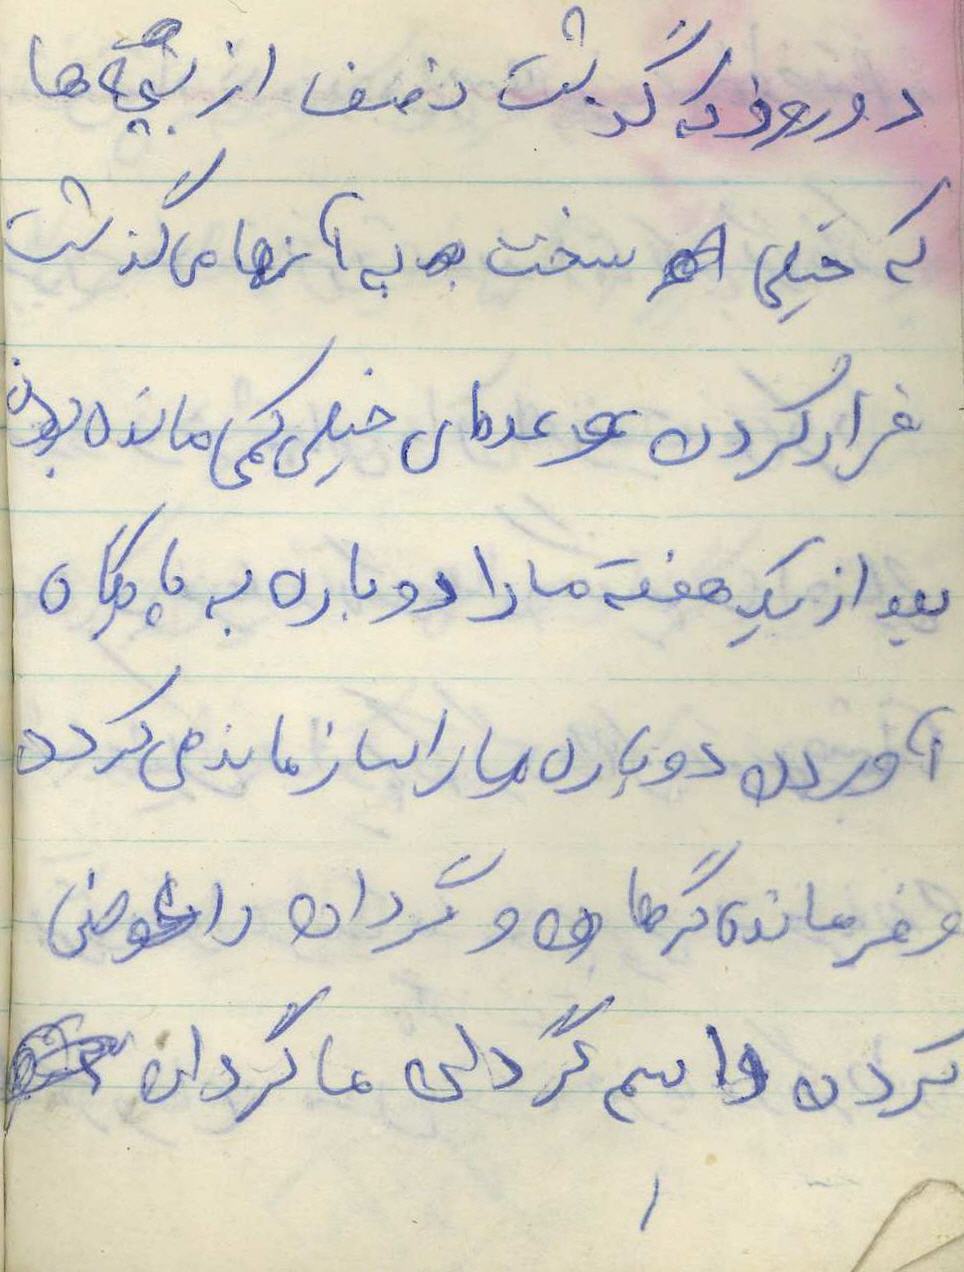 دو روز که گذشت نصف از بچه ها
که خیلی سخت به آنها می گذشت
فرار کردن و عده ای خیلی کمی مانده بودن
بعد از یک هفته ما را دوباره به پادگان
آوردن دوباره ما را سازماندهی کردن
و فرمانده گرهان و گردان را عوض
کردن و اسم گردان ما گردان
۱